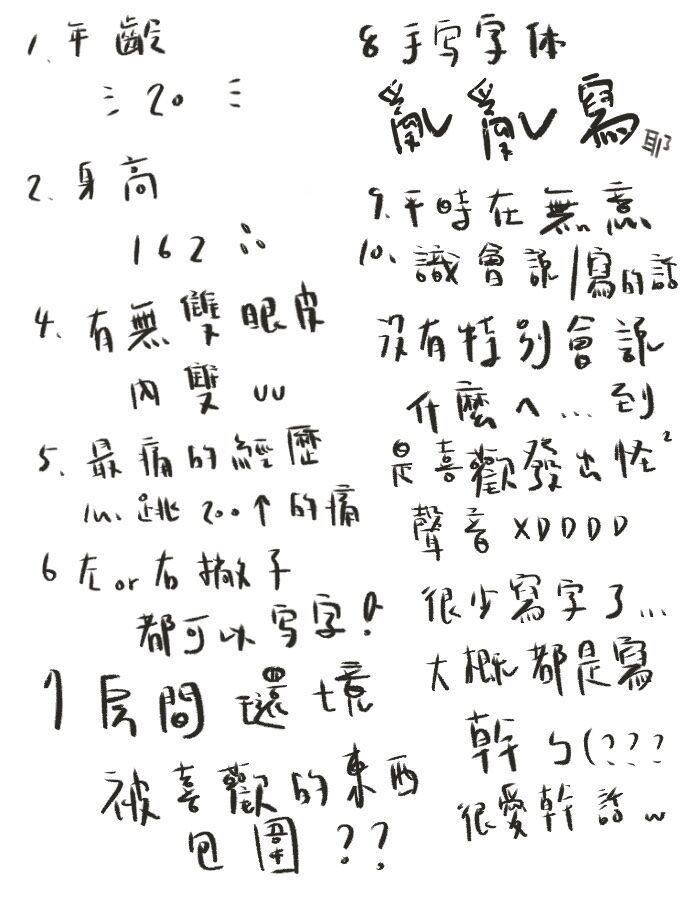 1. 年齡
20
2. 身高
162
4. 有無雙眼皮
內雙 uu
5. 最痛的經歷
跳200↑的痛
6 左or右撇子
都可以写字!
7 房間還境
被喜歡的東西
包圍??
8 手写字体
亂亂寫耶
9. 平時在無意
10. 識會說/寫的話
沒有特別會說
什麼ㄟ...到
是喜歡發出怪²
聲音XDDDD
很少寫字了...
大概都是寫
幹ㄅ(???
很愛幹話w